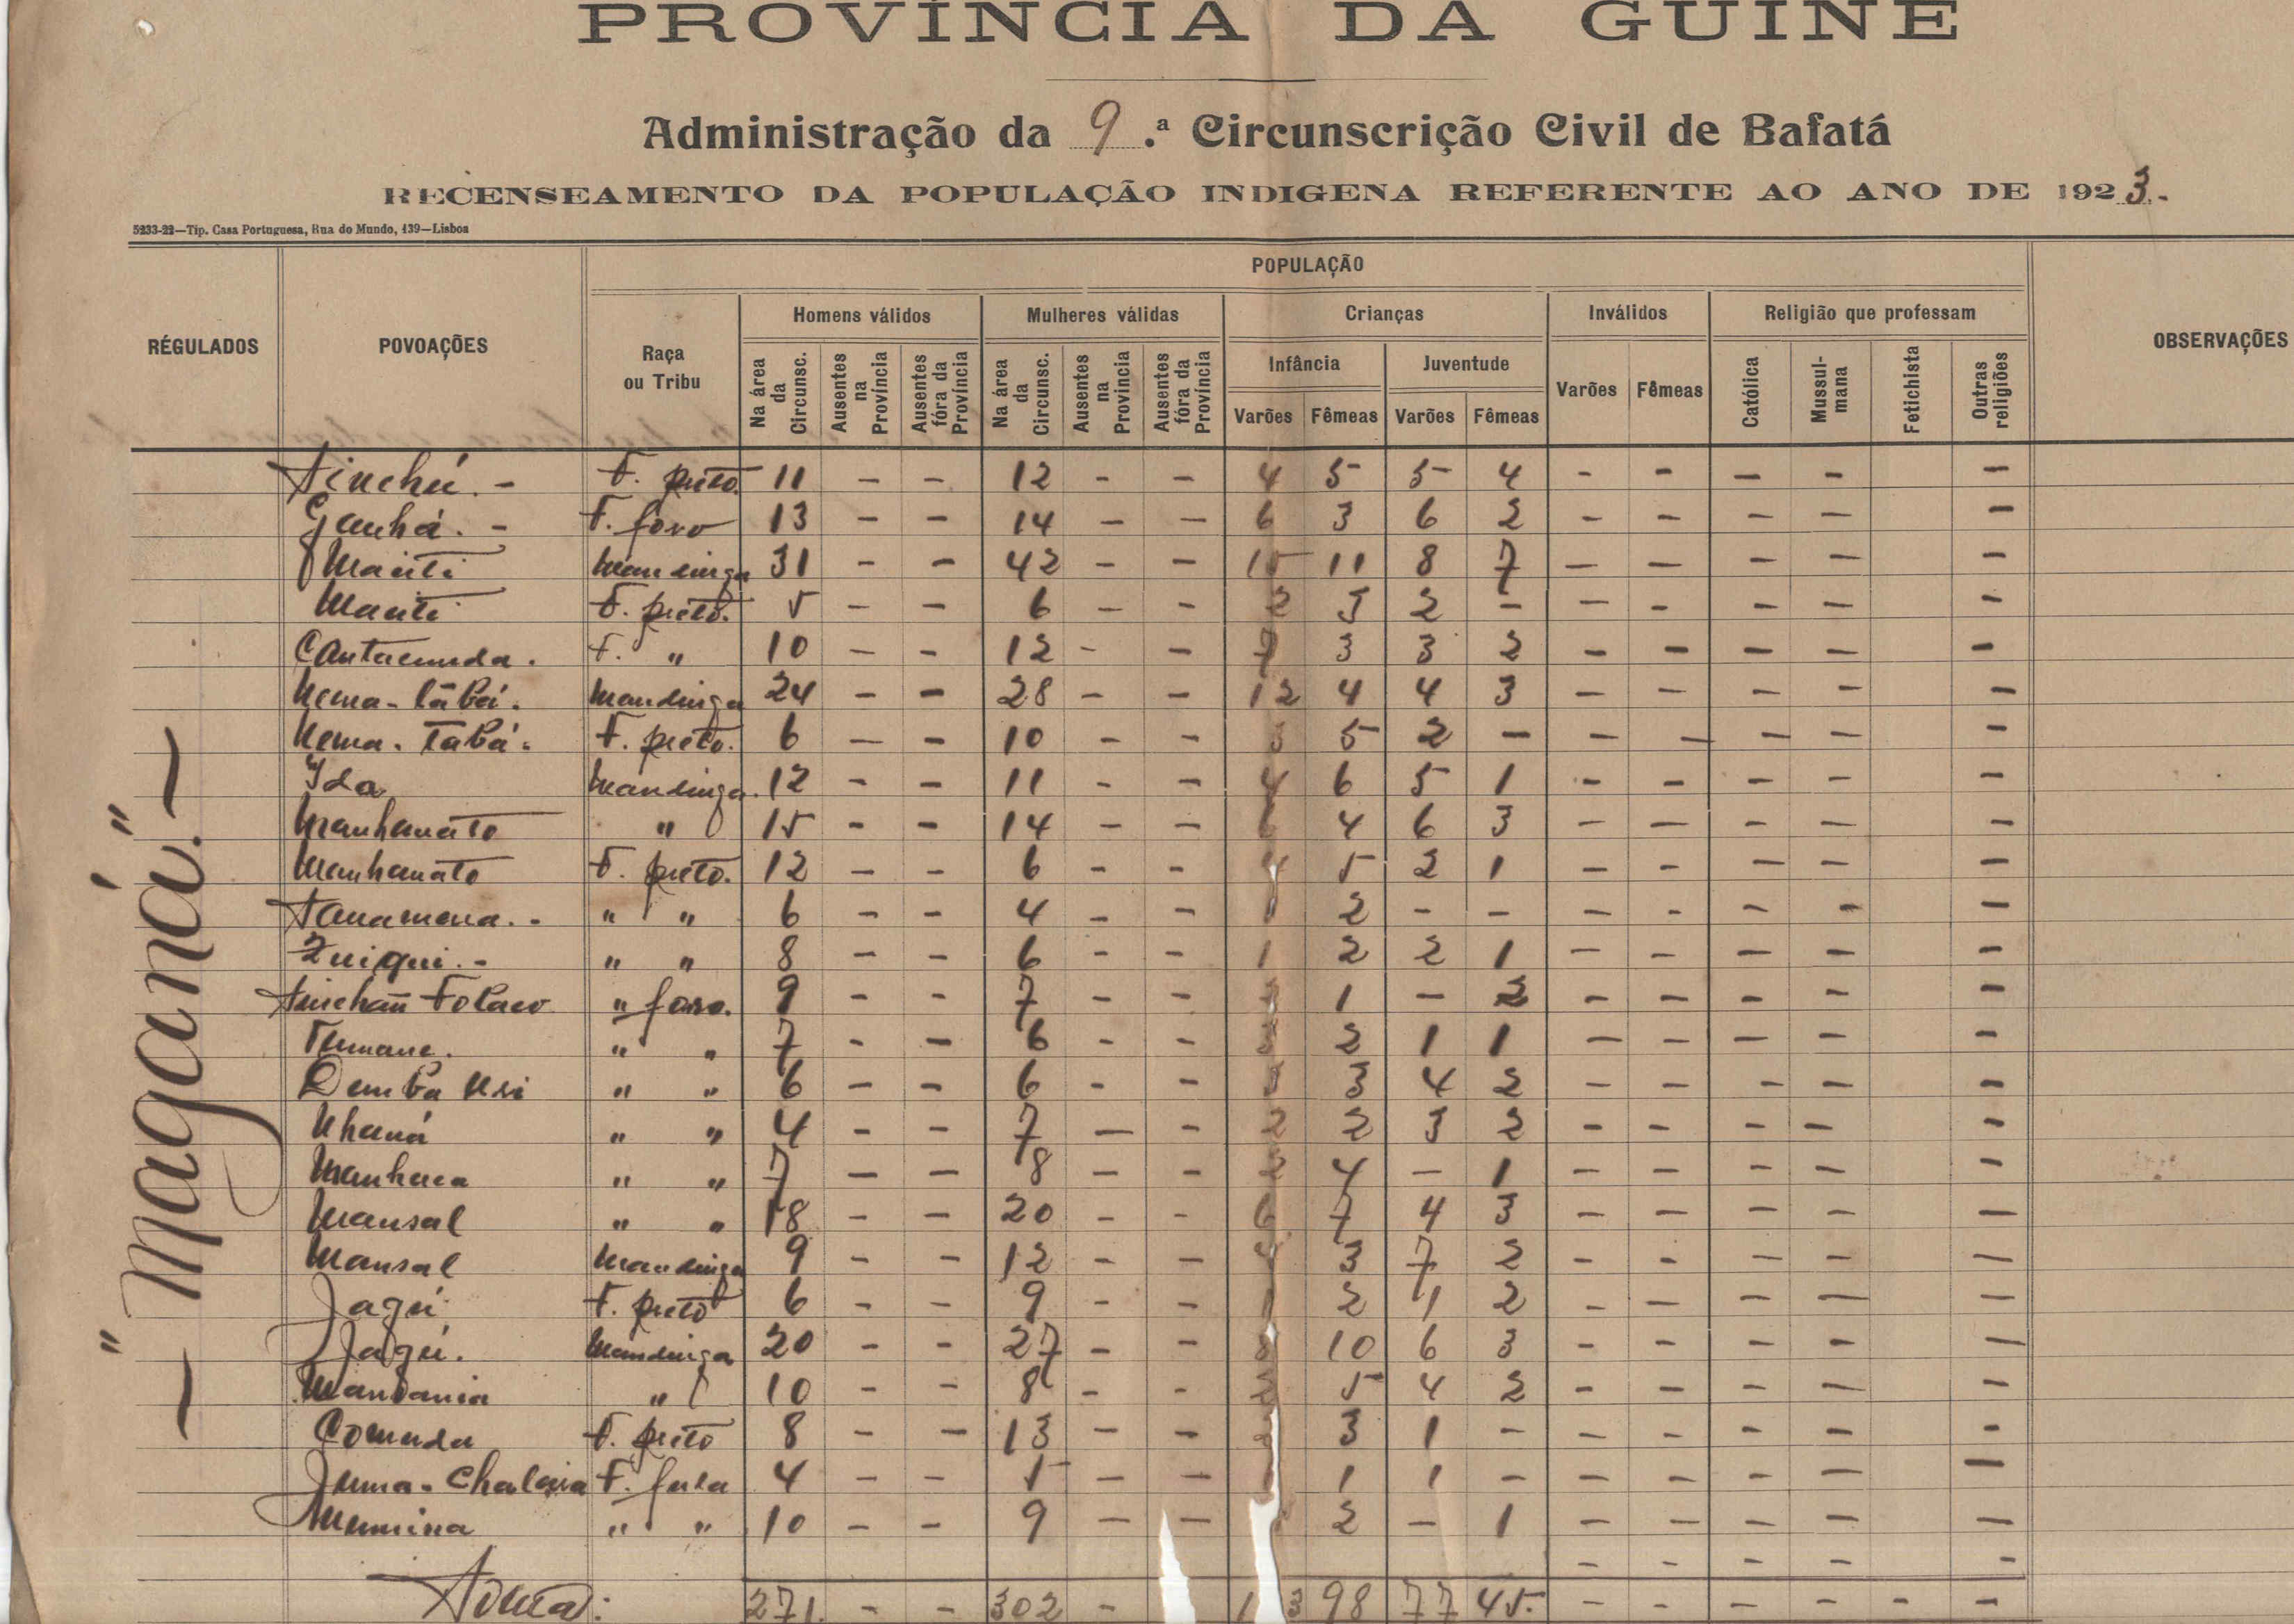 PROVÍNCIA DA GUINÉ
Administração da 9.ª Circunscrição Civil de Bafatá
RECENSEAMENTO DA POPULAÇÃO INDIGENA REFERENTE AO ANO DE 1923.
5233-22—Tip. Casa Portuguesa, Rua do Mundo, 139—Lisboa
RÉGULADOS POVOAÇÕES Raça ou Tribu POPULAÇÃO OBSERVAÇÕES
Homens válidos Mulheres válidas Crianças Inválidos Religião que professam
Infância Juventude
Na área da Circunsc. Ausentes na Província Ausentes fóra da Província Na área da Circunsc. Ausentes na Província Ausentes fóra da Província Varões Fêmeas Varões Fêmeas Varões Fêmeas Católica Mussulmana Fetichista Outras religiões
— "Maganá." —
F. preto 11 — — 12 — — 4 5 5 4 — — — — —
F. foro 13 — — 14 — — 6 3 6 2 — — — — —
Manti Mandinga 31 — — 42 — — 15 11 8 7 — — — — —
Manti F. preto. 5 — — 6 — — 2 3 2 — — — — — —
Cantacunda. F. " 10 — — 12 — — 7 3 3 2 — — — — —
Nema-Tabá. Mandinga 24 — — 28 — — 12 4 4 3 — — — — —
Nema-Tabá. F. preto. 6 — — 10 — — 3 5 2 — — — — — —
Ida Mandinga. 12 — — 11 — — 4 6 5 1 — — — — —
Manhanato " 15 — — 14 — — 4 6 3 — — — — —
Manhanato F. preto. 12 — — 6 — — 4 5 2 1 — — — — —
" " 6 — — 4 — — 1 2 — — — — — — —
" " 8 — — 6 — — 1 2 2 1 — — — — —
" foro. 9 — — 7 — — 1 — 2 — — — — —
Tumane. " " 7 — — 6 — — 2 1 1 — — — — —
Demba Uri " " 6 — — 6 — — 3 4 2 — — — — —
Nhaná " " 4 — — 7 — — 2 2 3 2 — — — — —
Manhaca " " 7 — — 8 — — 2 4 — 1 — — — — —
Mansal " " 18 — — 20 — — 6 7 4 3 — — — — —
Mansal Mandinga 9 — — 12 — — 3 7 2 — — — — —
Jagú F. preto 6 — — 9 — — 1 2 1 2 — — — — —
Jagú. Mandinga 20 — — 27 — — 8 10 6 3 — — — — —
Mandania " 10 — — 8 — — 5 4 2 — — — — —
Comuda F. preto 8 — — 13 — — 3 1 — — — — — —
F. fula 4 — — 5 — — 1 1 — — — — — —
" " 10 — — 9 — — 2 — 1 — — — — —
— — — — —
Soma: 271. — — 302 — 98 77 45. — — — — — —